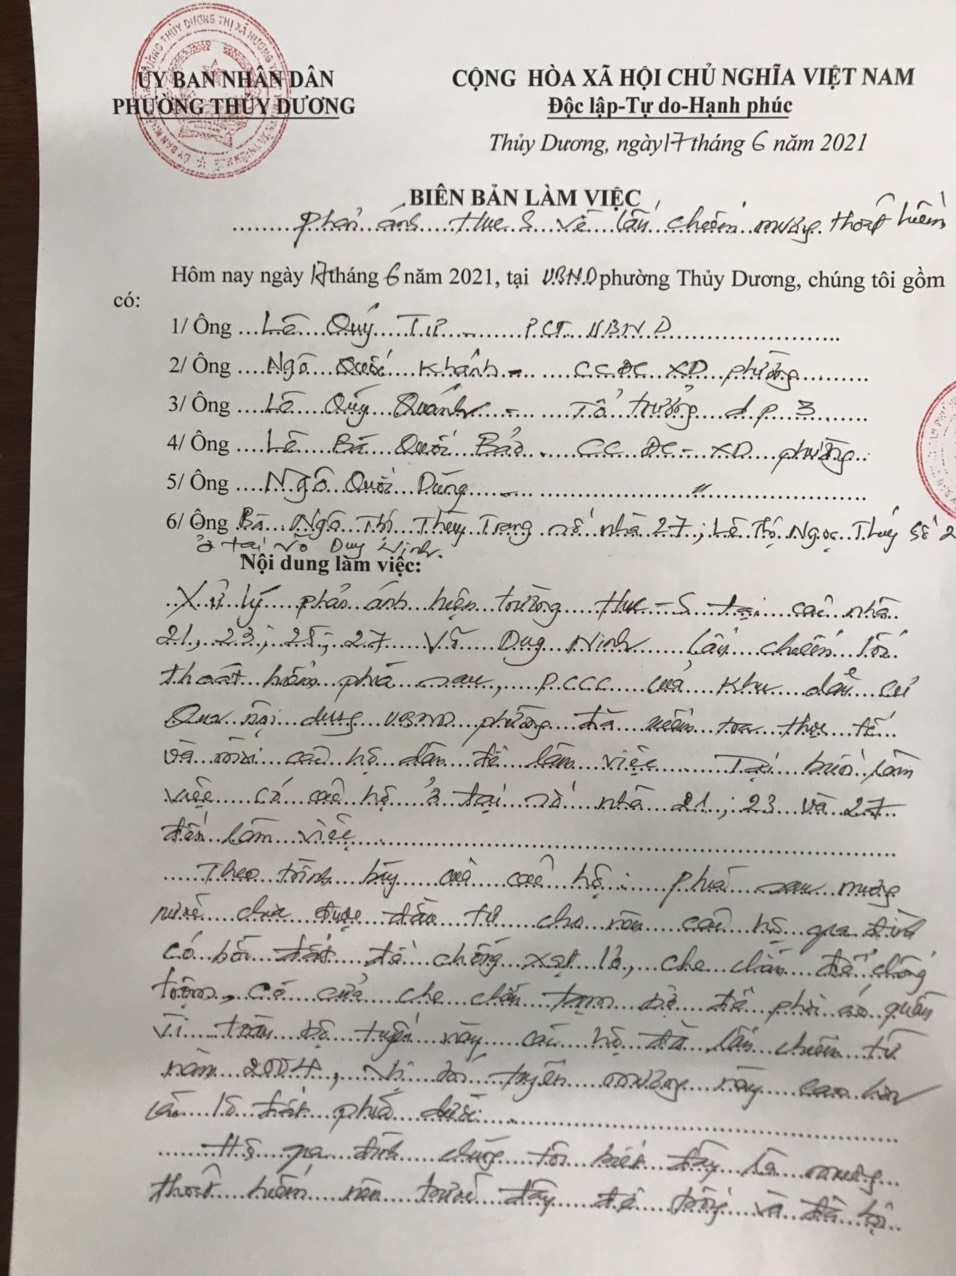 ỦY BAN NHÂN DÂN
PHƯỜNG THỦY DƯƠNG
CỘNG HÒA XÃ HỘI CHỦ NGHĨA VIỆT NAM
Độc lập-Tự do-Hạnh phúc
Thủy Dương, ngày 17 tháng 6 năm 2021
BIÊN BẢN LÀM VIỆC
phản ánh Hue-S về lấn chiếm mương thoát hiểm
Hôm nay ngày 17 tháng 6 năm 2021, tại UBND phường Thủy Dương, chúng tôi gồm
có:
1/ Ông Lê Quý - PCT UBND
2/ Ông Ngô Quốc Khánh - CC ĐC XD phường
3/ Ông Lê Quý - Tổ trưởng d.p 3
4/ Ông Lê Bá Quốc Bảo - CC ĐC - XD phường
5/ Ông Ngô Dũng - "
6/ Ông Bà Ngô Thị Thùy Trang số nhà 27; Lê Thị Ngọc Thúy số 2
ở tại Võ Duy Ninh.
Nội dung làm việc:
Xử lý phản ánh hiện trường Hue-S tại các nhà
21, 23, 25, 27 Võ Duy Ninh lấn chiếm lối
thoát hiểm phía sau, PCCC của khu dân cư
Qua nội dung UBND phường đã kiểm tra thực tế
và mời các hộ dân đến làm việc. Tại buổi làm
việc có các hộ ở tại số nhà 21, 23 và 27
đến làm việc
Theo trình bày của các hộ: phía sau mương
chưa được đầu tư cho nên các hộ gia đình
có đất để chống sạt lở, che chắn để chống
trộm, có che chắn tạm để phơi áo quần
Vì toàn bộ tuyến này các hộ đã lấn chiếm từ
năm 2004, tuyến mương này cao hơn
các lô đất phía dưới
Hộ gia đình chúng tôi biết đây là mương
thoát hiểm nên trước đây và đã